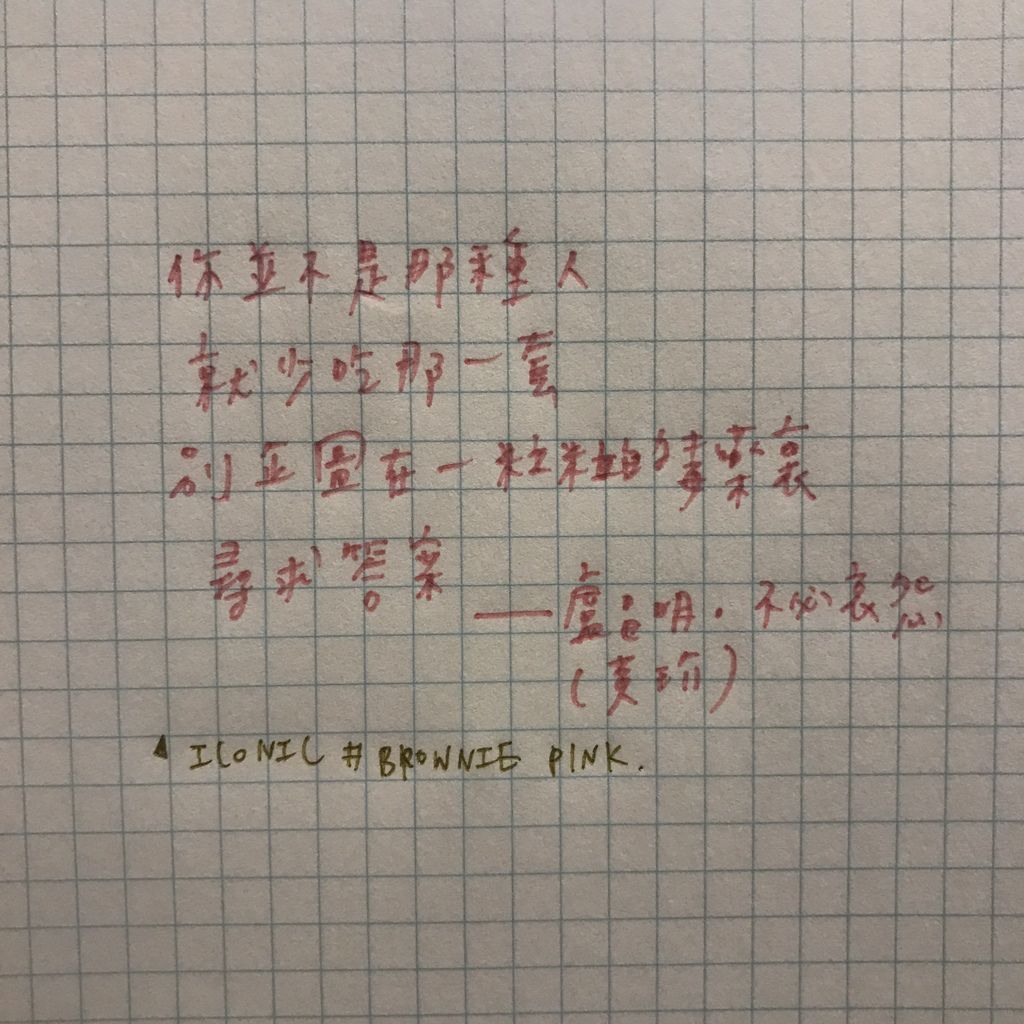 你並不是那種人
就少吃那一套
別正圖在一粒粒的毒藥裏
尋求答案
——盧昌明．不必哀怨
(黃玠)
ICONIC # BROWNIE PINK.